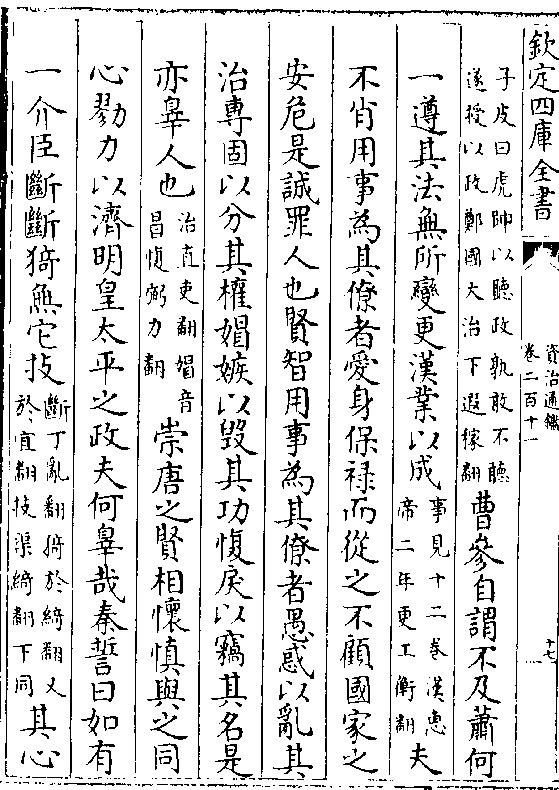 欽定四庫全書
資治通鑑
卷二百十一
十七
子皮曰虎帥以聽政孰敢不聽遂授以政鄭國大治下遐稼翻曹參自謂不及蕭何
一遵其法無所變更漢業以成事見十二卷漢惠帝二年更工衡翻夫
不肖用事為其僚者愛身保祿而從之不顧國家之
安危是誠罪人也賢智用事為其僚者愚惑以亂其
治專固以分其權媢嫉以毀其功愎戾以竊其名是
亦辠人也治直吏翻媢音昌愎弼力翻崇唐之賢相懷慎與之同
心勠力以濟明皇太平之政夫何辠哉秦誓曰如有
一介臣斷斷猗無它技斷丁亂翻猗於綺翻又於宜翻技渠綺翻下同其心